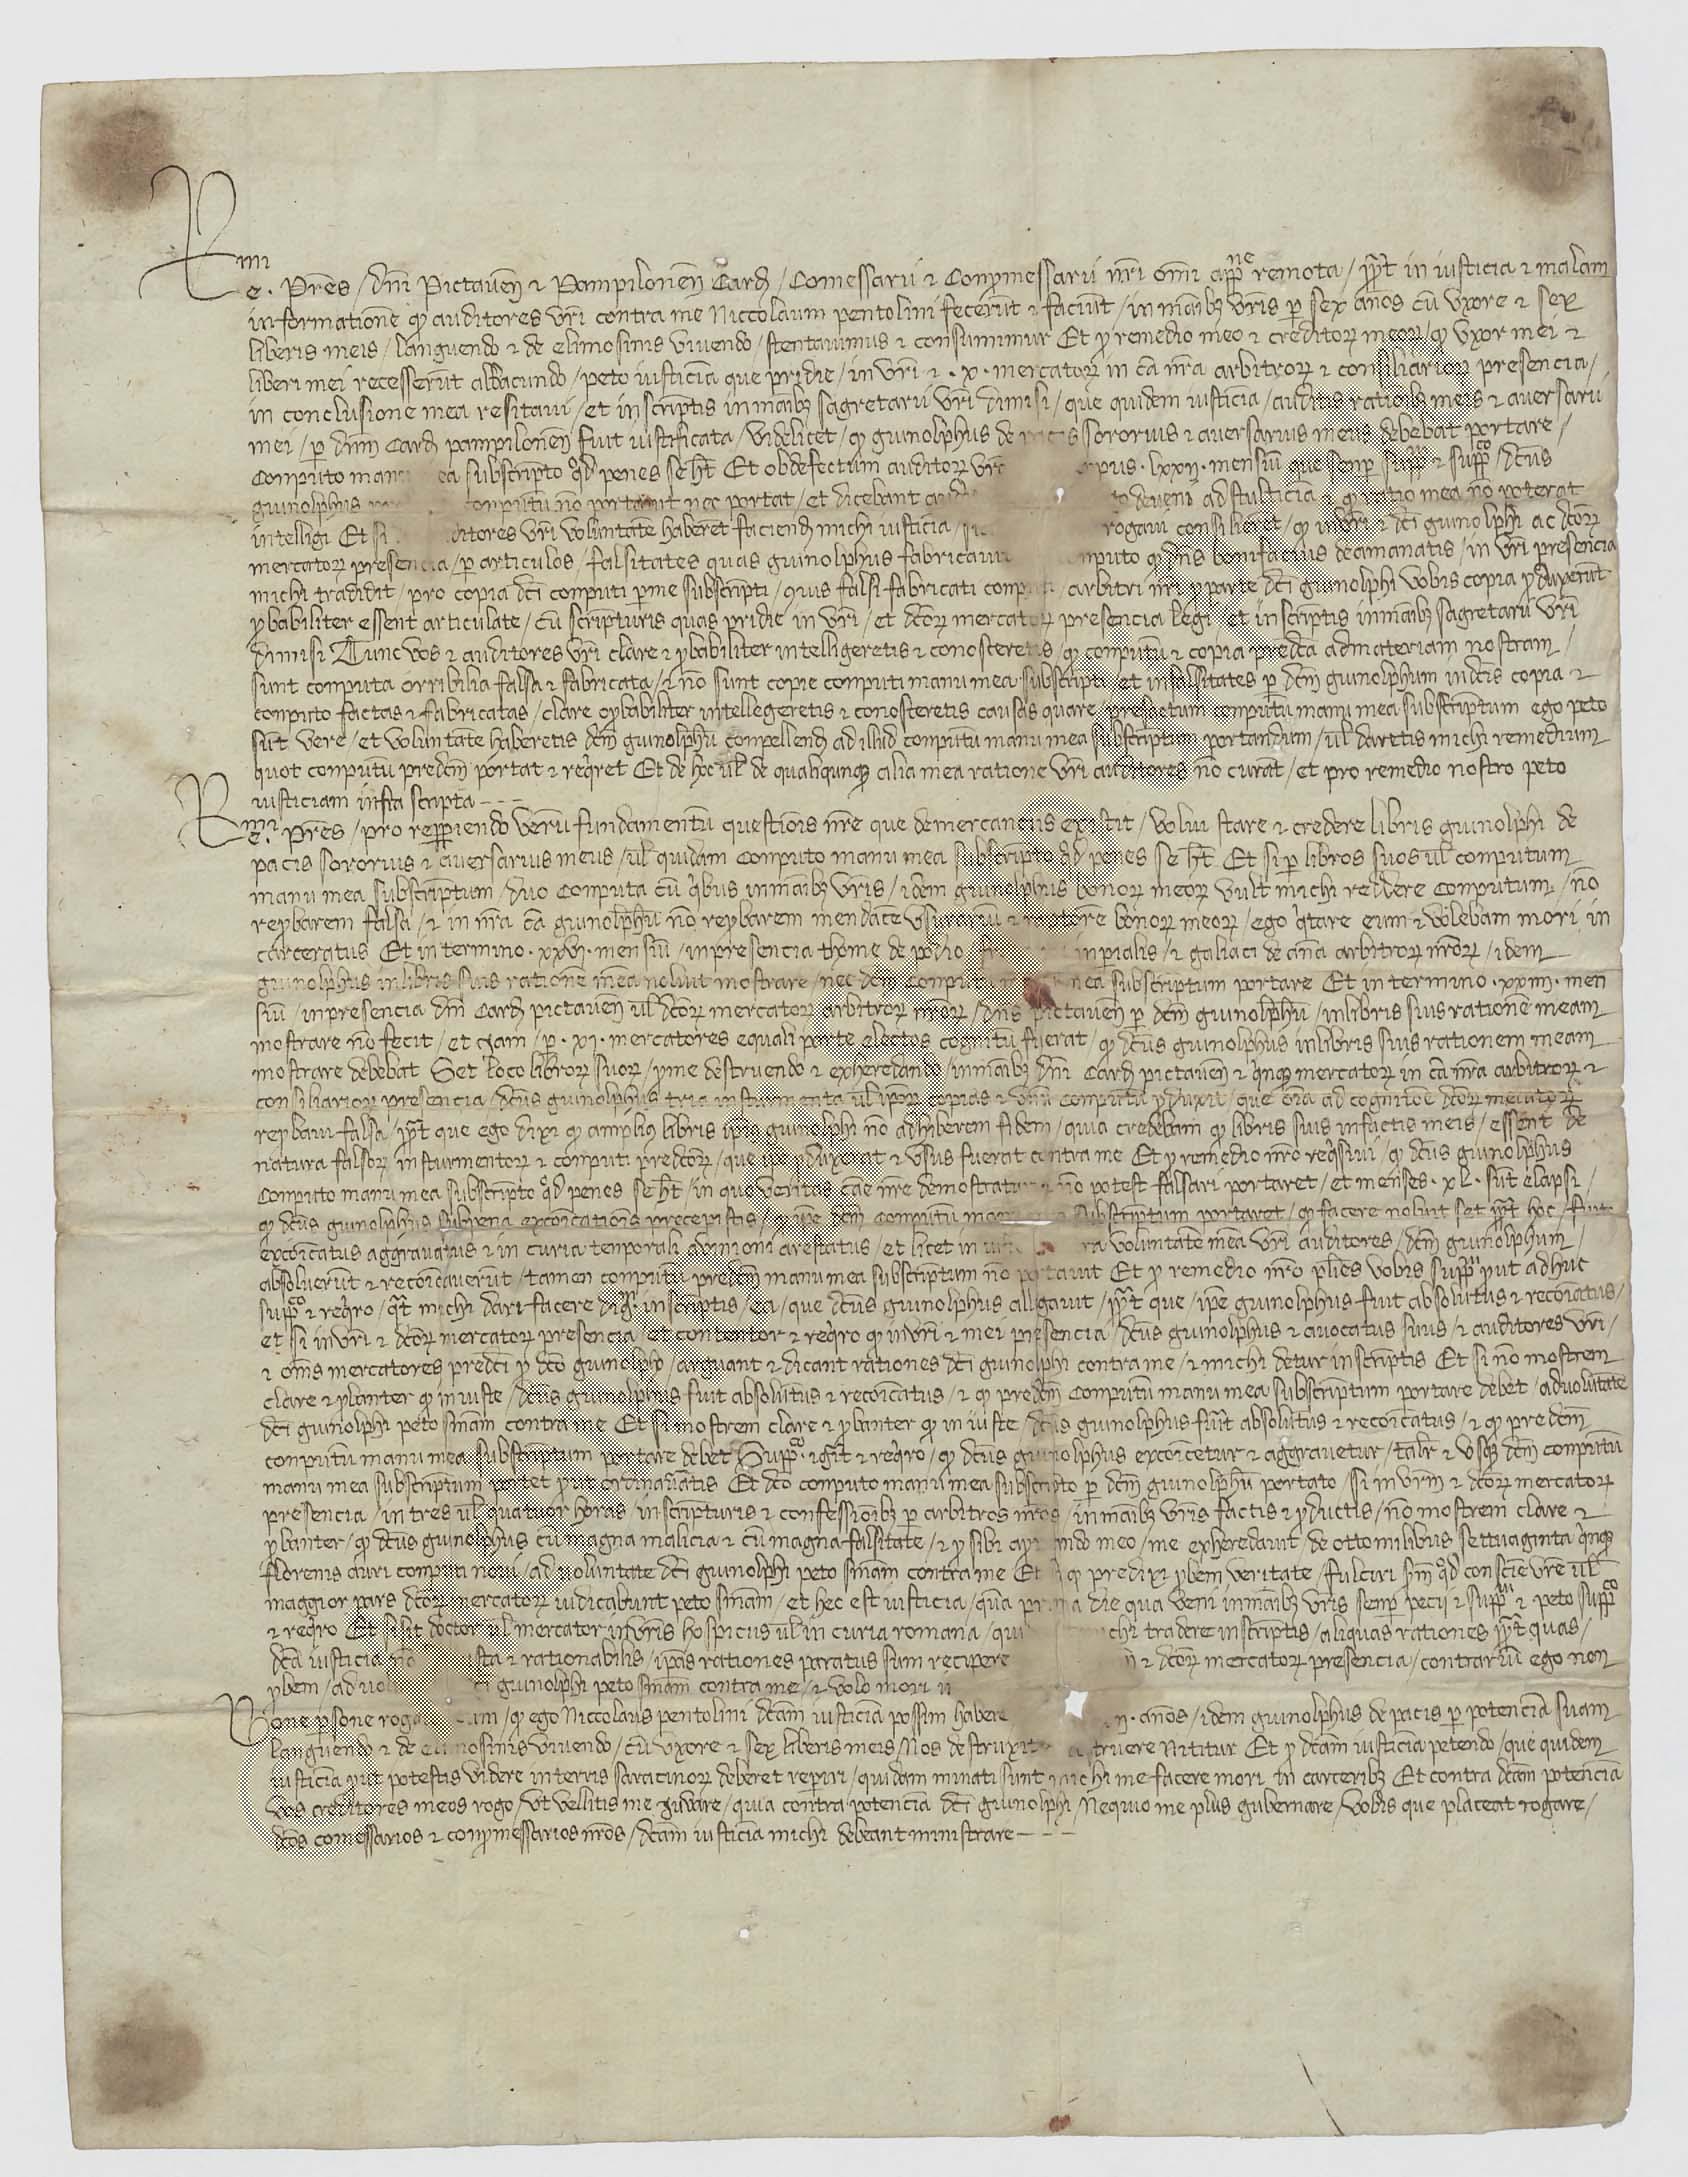 Rmi
e. Pres / dni Pictaven & Pampilonen Card / Comessarii & Conpmessarii nri omi appne remota / ppt in iusticia & malam
informatione q auditores vri contra me Niccolaum pentolini fecerut & faciut / in maibz vris p sex anos cu vxore & sex
liberis meis / languendo & de elimosinis vivendo / stentavimus & consumimur Et p remedio meo & creditorz meorz / q vxor mei &
liberi mei recesserut abbacundo / peto iusticia que pridie / in vri & .x. mercatorz in ca nra arbitrorz & consiliariorz presencia /
in conclusione mea resitavi / et in scriptis in maibz sagretarii vri dimisi / que quidem iusticia / auditis ratioibz meis & aversarii
mei / p dnm Card pampilonen fuit iustificata / videlicet / q guinolphus de sororius & aversarius meus debebat portare /
Computo subscripto qd penes se ht Et ob defectum auditorz .lxxii. mensiu que senp suppi & suppco / dcus
guinolphus no portavit nec portat / et dicebant deveni ad stulticia & q ratio mea no poterat
intelligi Et si vri voluntate haberet faciend michi iusticia / rogavi consilieret / q in vri & dci guinolphi ac dcorz
mercatorz presencia / p articulos / falsitates quas guinolphus fabricavit q dns bonifacius de amanatis / in vri presencia
michi tradidit / pro copia dci conputi p me subscripti / q{us} falsi fabricati / arbitri nri p parte dci guinolphi vobis copia pduxerut
pbabiliter essent articulate / cu scripturis quas pridie in vri / et dcorz mercatorz presencia legi / et in scriptis in maibz sagretarii vri
dimisi Tunc vos & auditores vri clare & pbabiliter intelligeretis & conosceretis / q conputu & copia predca ad materiam nostram /
sunt computa orribilia falsa & fabricata / & no sunt copie conputi manu mea subscripti / et in falsitates p dcm guinolphum in dcis copia &
conputo factas & fabricatas / clare & pbabiliter intellegeretis & conosceretis causas quare / predctum conputu manu mea subscriptum ego peto
sut vere / et voluntate haberetis dcm guinolphu conpellend ad illud conputu manu mea subscriptum portandum / ul daretis michi remedium
quot conputu predcm portat & reqret Et de hoc ul de qualiqunqz alia mea ratione vri auditores no curat / et pro remedio nostro peto
iusticiam infra scripta - - -
Rmi
e. Pres / pro reppiendo veru fundamentu questiois nre que de mercanciis existit / volui stare & credere libris guinolphi de
pacis sororius & aversarius meus / ul quidam computo manu mea subscripto qd penes se ht Et si p libros suos ul conputum
manu mea subscriptum / duo conputa cu qbus in maibz vris / idem guinolphus bonorz meorz vult michi reddere conputum / no
repbarem falsa / & in nra ca guinolphu no repbarem mendace vsurariu & bonorz meorz / ego qtare eum & volebam mori in
carceratus Et in termino .xxvi. mensiu / in presencia thome de podio inperialis / & galiaci de ana arbitrorz nrorz / idem
guinolphus in libris suis ratione mea noluit mostrare / nec dcm conputu mea subscriptum portare Et in termino .xxiii. men
siu / in presencia dni Card pictaven ul dcorz mercatorz arbitrorz nrorz / dns pictaven p dcm guinolphu / in libris suis ratione meam
mostrare no fecit / et eciam / p .xi. mercatores equali parte electos cognitu fuerat / q dcus guinolphus in libris suis rationem meam
mostrare debebat Set loco librorz suorz / p me destruendo & exheredando / in maibz dni Card pictaven & qnqz mercatorz in ca nra arbitrorz &
consiliariorz presencia / dcus guinolphus tria insturmenta ul iporz copias & vnu conputu pduxit / que oia ad cognitioe dcorz mercatorz
repbavi falsa / ppt que ego dixi q amplius libris ipius guinolphi no adhiberem fidem / quia credebam q libris suis in factis meis / essent de
natura falsorz insturmentorz & conputi predcorz / que ipe pduxerat & vsus fuerat contra me Et p remedio nro reqsiui / q dcus guinolphus
computo manu mea subscripto qd penes se ht / in que veritas cae nre demostratur & no potest falsari portaret / et menses .xl. sut elapsi /
q dcus guinolphus sub pena excoicatiois precepistis / q ipe dcm conputu subscriptum portaret / q facere noluit set ppt hoc / fuit
excoicatus aggravatus & in curia tenporali avinioni arestatus / et licet in voluntate mea vri auditores / dcm guinolphum /
absoluerut & recoicauerut / tamen conputu predcm manu mea subscriptum no portavit Et p remedio nro plies vobis suppi put adhuc
suppco & reqro / qt michi dari facere dig. in scriptis / ea / que dcus guinolphus alligavit / ppt que / ipe guinolphus fuit absolutus & recoicatus /
et si in vri & dcorz mercatorz presencia / et contentor & reqro q in vri & mei presencia / dcus guinolphus & avocatus suus / & auditores vri /
& oms mercatores predci p dco guinolpho / arguant & dicant rationes dci guinolphi contra me / & michi detur in scriptis Et si no mostrem
clare & pbanter q iniuste / dcus guinolphus fuit absolutus & recoicatus / & q predcm conputu manu mea subscriptum portare debet / ad volutate
dci guinolphi peto sniam contra me Et si mostrem clare & pbanter q in iuste / dcus guinolphus fuit absolutus & recoicatus / & q predcm
conputu manu mea subscriptum portare debet Suppco. igit & reqro / q dcus guinolphus excoicetur & aggravetur / talr & vsqz dcm conputu
manu mea subscriptum portet put ordinavatis Et dco computo manu mea subscripto p dcm guinolphu portato / si in vrm & dcorz mercatorz
presencia / in tres ul quatuor horas / in scripturis & confessioibz p arbitros nros / in maibz vris factis & pductis / no mostrem clare &
pbanter / q dcus guinolphus cu magna malicia & cu magna falsitate / & p sibi meo / me exheredavit / de otto milibus settuaginta qnqz
florenis auri conputi novi / ad voluntate dci guinolphi peto sniam contra me Et q predixi pbem veritate / fulciri sm qd conscie vre ul
maggior pars dcorz mercatorz iudicabunt peto sniam / et hec est iusticia / qua prima die qua veni in maibz vris senp pecii & suppi & peto suppco
& reqro Et si sit doctor ul mercator in vris hospicus ul in curia romana / qui tradere in scriptis / aliquas rationes ppt quas /
dca iusticia & rationabilis / ipas rationes paratus sum recipere & dcorz mercatorz presencia / contrariu ego non
pbem / ad guinolphi peto sniam contra me / & volo mori
Bone psone / q ego Niccolaus pentolini dcam iusticia possim habere anos / idem guinolphus de pacis p potencia suam
languendo & de elimosinis vivendo / cu vxore & sex liberis meis / Nos destruxit nititur Et p dcam iusticia petendo / que quidem
iusticia put potestis videre in terris saracinorz deberet reperiri / quidam minati sunt michi me facere mori in carceribz Et contra dcam potencia
vos creditores meos rogo / vt vellitis me iuvare / quia contra potencia dci guinolphi / nequio me plus gubernare / vobis que placeat rogare /
dcos comessarios & conpmessarios nros / dcam iusticia michi debeant ministrare - - -